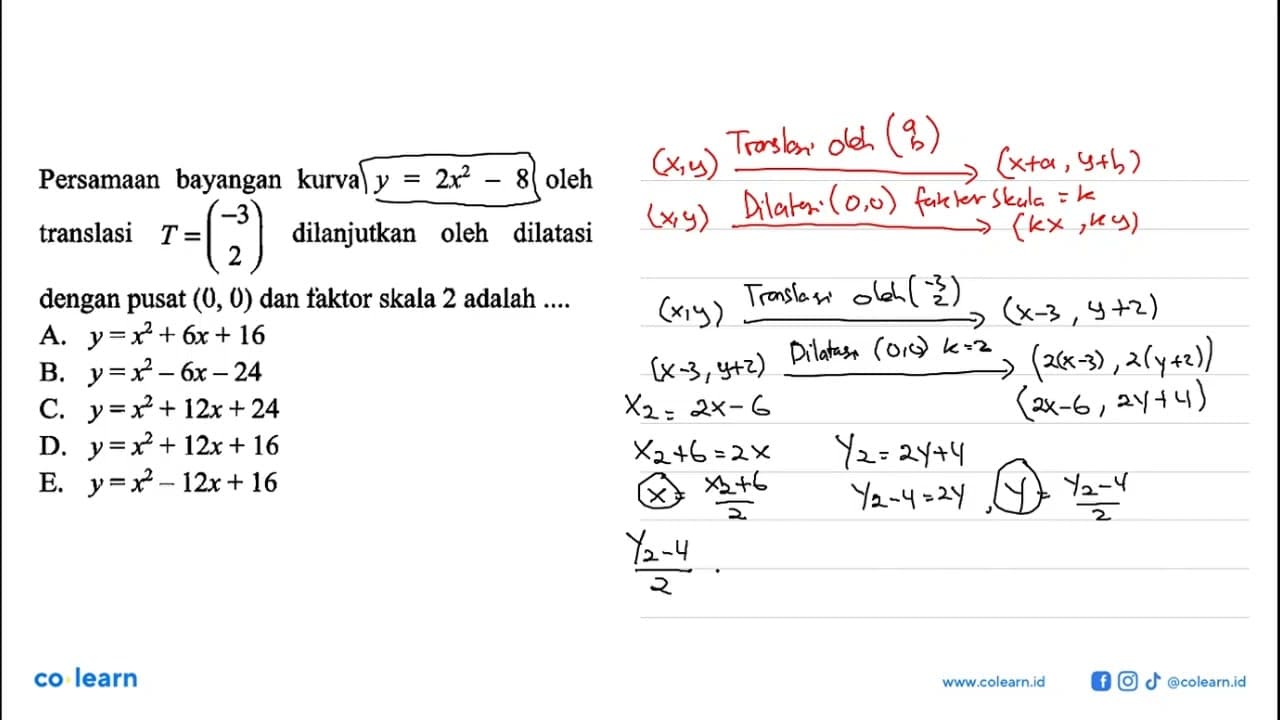 Persamaan bayangan kurva y = 2x² – 8 oleh
translasi T = (–3 2) dilanjutkan oleh dilatasi
dengan pusat (0, 0) dan faktor skala 2 adalah ....
A. y = x² + 6x + 16
B. y = x² – 6x – 24
C. y = x² + 12x + 24
D. y = x² + 12x + 16
E. y = x² – 12x + 16
(x,y) Translasi oleh (a b) (x+a, y+b)
(x,y) Dilatasi (0,0) faktor skala = k
(kx, ky)
(x,y) Translasi oleh (-3 2) (x-3, y+2)
(x-3, y+2) Dilatasi (0,0) k=2 (2(x-3), 2(y+2))
(2x-6, 2y+4)
x₂ = 2x-6
x₂+6 = 2x y₂ = 2y+4
x = x₂+6/2 y₂-4 = 2y, y = y₂-4/2
y₂-4/2
co learn
www.colearn.id @colearn.id